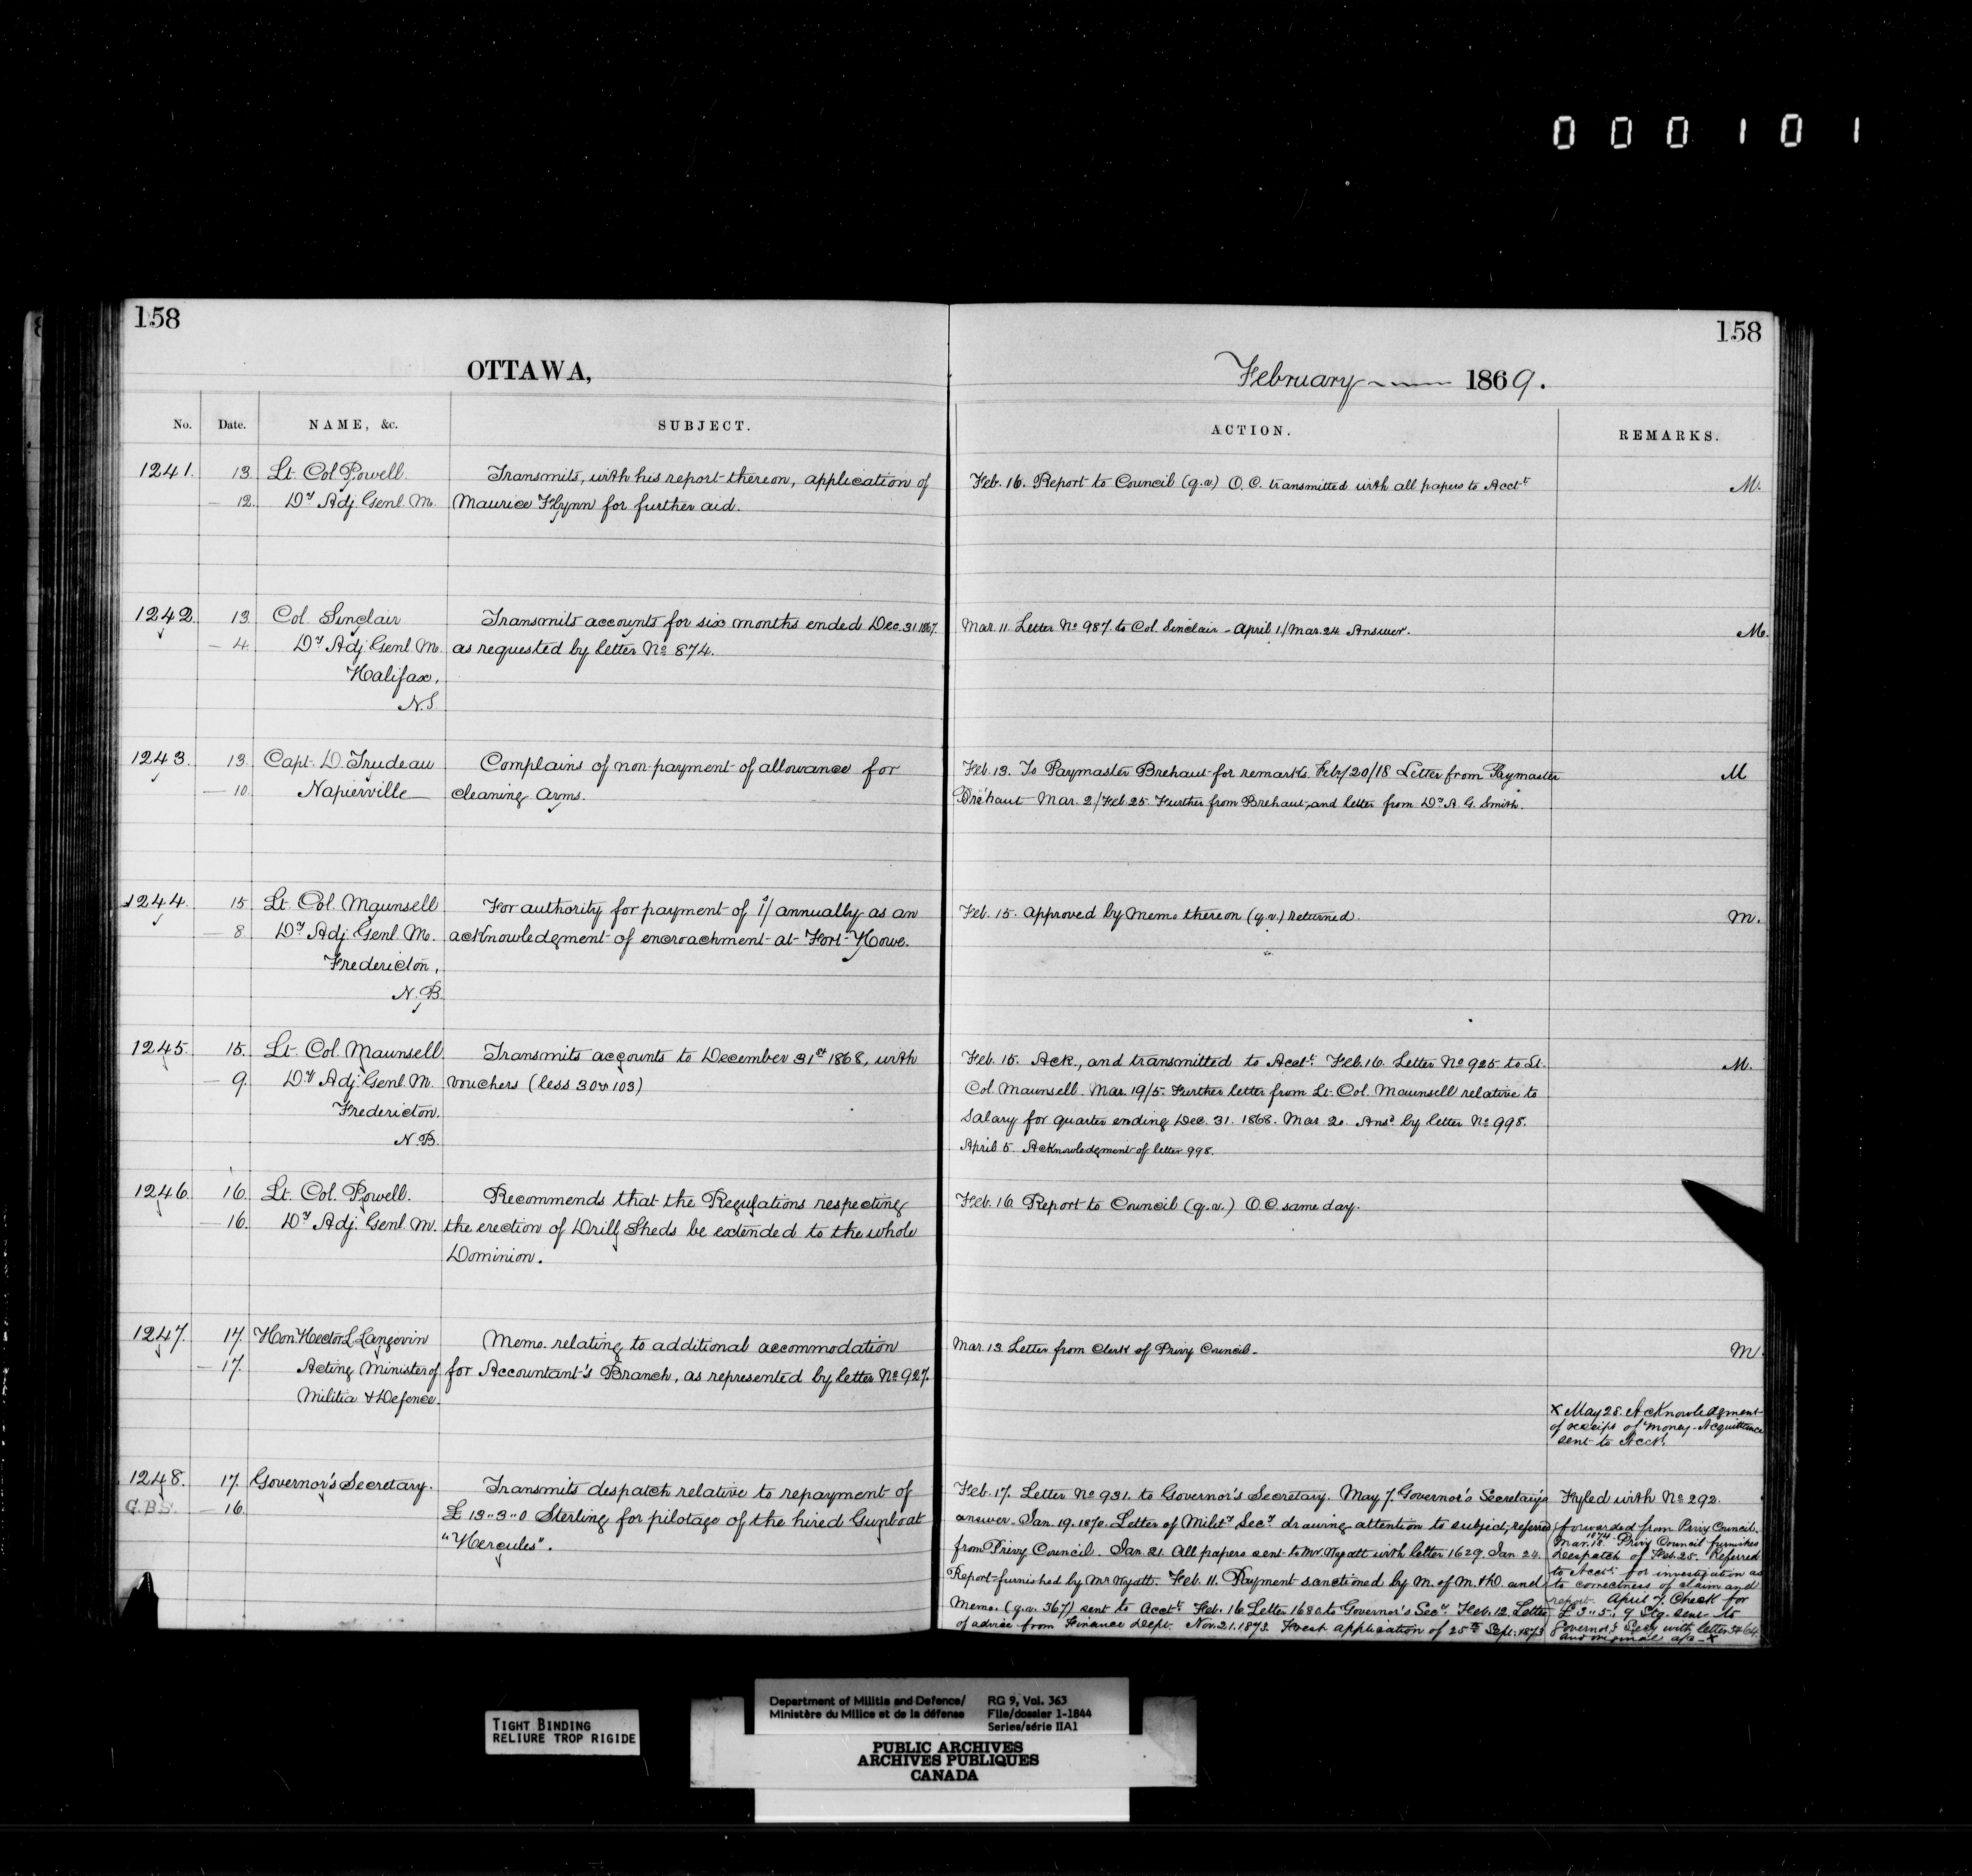 000101
158
158
OTTAWA,
February 1869.
No. Date. NAME, &c. SUBJECT. ACTION. REMARKS.
1241. 13. Lt. Col. Powell. Transmits, with his report thereon, application of Feb. 16. Report to Council (q.v.) O.C. transmitted with all papers to Acct.t M.
— 12. Dy Adj. Genl. M. Maurice Flynn for further aid.
1242. 13. Col. Sinclair Transmits accounts for six months ended Dec. 31. 1867. Mar. 11. Letter No 987. to Col. Sinclair - April 1/Mar. 24 Answer. M.
— 4. Dy Adj. Genl. M. as requested by letter No 874.
Halifax,
N.S.
1243. 13. Capt. D. Trudeau Complains of non-payment of allowance for Feb. 13. To Paymaster Brehaut for remarks. Feby/20/18 Letter from Paymaster M
— 10. Napierville cleaning Arms. Bréhaut Mar. 2/Feb. 25. Further from Brehaut, and letter from Dy A. G. Smith.
1244. 15 Lt. Col. Maunsell For authority for payment of 1/ annually as an Feb. 15. Approved by Memo thereon (q.v.) returned. M.
— 8. Dy Adj. Genl. M. acknowledgment of encroachment at Fort Howe.
Fredericton,
N.B.
1245. 15. Lt. Col. Maunsell Transmits accounts to December 31st 1868, with Feb. 15. Ack., and transmitted to Acct.t Feb. 16. Letter No 925. to Lt. M.
— 9. Dy Adj. Genl. M. vouchers (less 30 & 103) Col. Maunsell. Mar. 19/5. Further letter from Lt. Col. Maunsell relative to
Fredericton. Salary for quarter ending Dec. 31. 1868. Mar. 20. Ansd by letter No 998.
N.B. April 5. Acknowledgment of letter 998.
1246. 16. Lt. Col. Powell. Recommends that the Regulations respecting Feb. 16. Report to Council (q.v.) O.C. same day.
— 16. Dy Adj. Genl. M. the erection of Drill Sheds be extended to the whole
Dominion.
1247. 17. Hon. Hector L. Langevin Memo. relating to additional accommodation Mar. 13. Letter from Clerk of Privy Council. M.
— 17. Acting Minister of for Accountant's Branch, as represented by letter No 927.
Militia & Defence.
x May 28. Acknowledgment
of receipt of money. Acquittance
sent to Acct.t
1248. 17. Governor's Secretary. Transmits despatch relative to repayment of Feb. 17. Letter No 931. to Governor's Secretary. May 7. Governor's Secretary's Fyled with No 292.
G.B.S. — 16. £13..3..0 Sterling for pilotage of the hired Gunboat answer. Jan. 19. 1870. Letter of Mility Secy drawing attention to subject, referred forwarded from Privy Council.
"Hercules". from Privy Council. Jan. 21. All papers sent to Mr. Wyatt with letter 1629. Jan. 24. Mar. 18. 1874 Privy Council furnishes
Despatch of Feb. 25. Referred
Report furnished by Mr. Wyatt. Feb. 11. Payment sanctioned by M. of M. & D. and to Acct.t for investigation as
to correctness of claim and
Memo. (q.v. 367) sent to Acct.t Feb. 16 Letter 1680 to Governor's Secy. Feb. 12. Letter report. April 7. Check for
of advice from Finance Dept. Nov. 21. 1873. Fresh application of 25th Sept. 1873 £3..5..9 Stg. sent to
Governor's Secy with letter
and original
Department of Militia and Defence/ RG 9, Vol. 363
Ministère du Milice et de la défense File/dossier 1-1844
Series/série IIA1
TIGHT BINDING
RELIURE TROP RIGIDE
PUBLIC ARCHIVES
ARCHIVES PUBLIQUES
CANADA